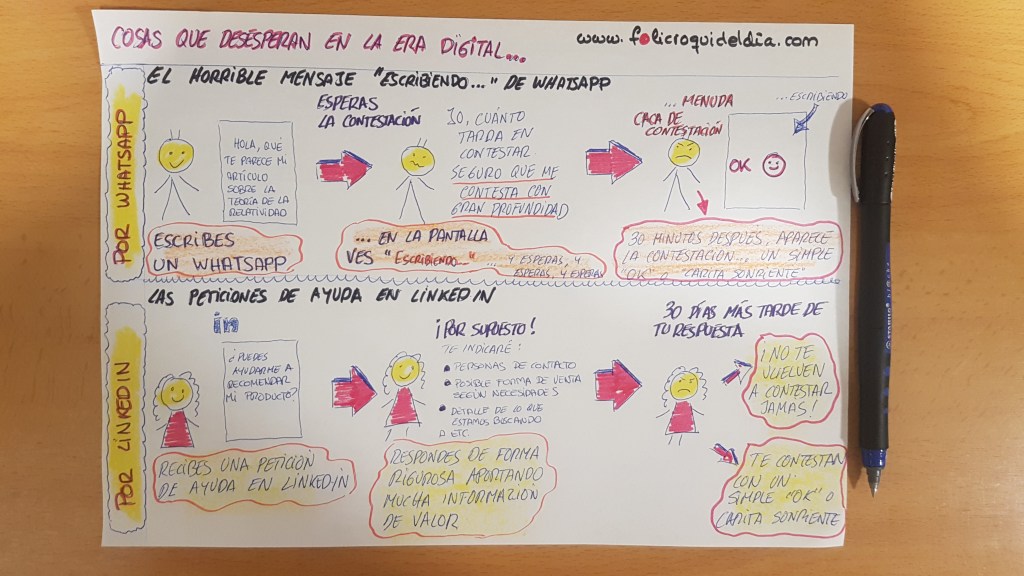 COSAS QUE DESESPERAN EN LA ERA DIGITAL...
www.folicroquideldia.com
POR WHATSAPP
EL HORRIBLE MENSAJE "ESCRIBIENDO..." DE WHATSAPP
HOLA, QUE
TE PARECE MI
ARTÍCULO
SOBRE LA
TEORÍA DE LA
RELATIVIDAD
ESCRIBES
UN WHATSAPP
ESPERAS
LA CONTESTACIÓN
JO, CUÁNTO
TARDA EN
CONTESTAR.
SEGURO QUE ME
CONTESTA CON
GRAN PROFUNDIDAD
... EN LA PANTALLA
VES "ESCRIBIENDO..."
... Y ESPERAS, Y
ESPERAS, Y ESPERAS
... MENUDA
CACA DE
CONTESTACIÓN
...ESCRIBIENDO
OK
30 MINUTOS DESPUÉS, APARECE
LA CONTESTACIÓN... UN SIMPLE
"OK" o CARITA SONRIENTE"
POR LINKEDIN
LAS PETICIONES DE AYUDA EN LINKEDIN
in
¿PUEDES
AYUDARME A
RECOMENDAR
MI PRODUCTO?
RECIBES UNA PETICIÓN
DE AYUDA EN LINKEDIN
¡POR SUPUESTO!
TE INDICARÉ:
PERSONAS DE CONTACTO
POSIBLE FORMA DE VENTA
SEGÚN NECESIDADES
DETALLE DE LO QUE
ESTAMOS BUSCANDO
ETC.
RESPONDES DE FORMA
RIGUROSA APORTANDO
MUCHA INFORMACIÓN
DE VALOR
30 DÍAS MÁS TARDE DE
TU RESPUESTA
¡NO TE
VUELVEN
A CONTESTAR
JAMAS!
TE CONTESTAN
CON UN
SIMPLE "OK" O
CARITA SONRIENTE